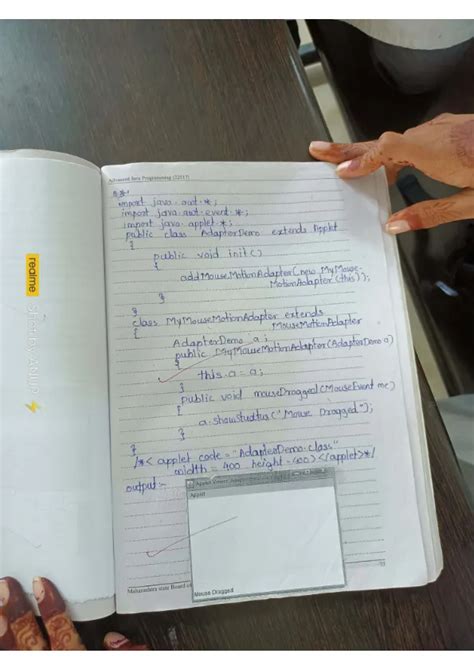 Advanced Java Programming (22517)
import java.awt.*;
import java.awt.event.*;
import java.applet.*;
public class AdapterDemo extends Applet
{
public void init()
{
addMouseMotionAdapter(new MyMouse-
MotionAdapter(this));
}
}
class MyMouseMotionAdapter extends
MouseMotionAdapter
{
AdapterDemo a;
public MyMouseMotionAdapter(AdapterDemo a)
{
this.a = a;
}
public void mouseDragged(MouseEvent me)
{
a.showStatus("Mouse Dragged");
}
}
/*< applet code = "AdapterDemo.class"
width = 400 height = 400></applet>*/
output :-
Applet
Mouse Dragged
Maharashtra state Board of
realme